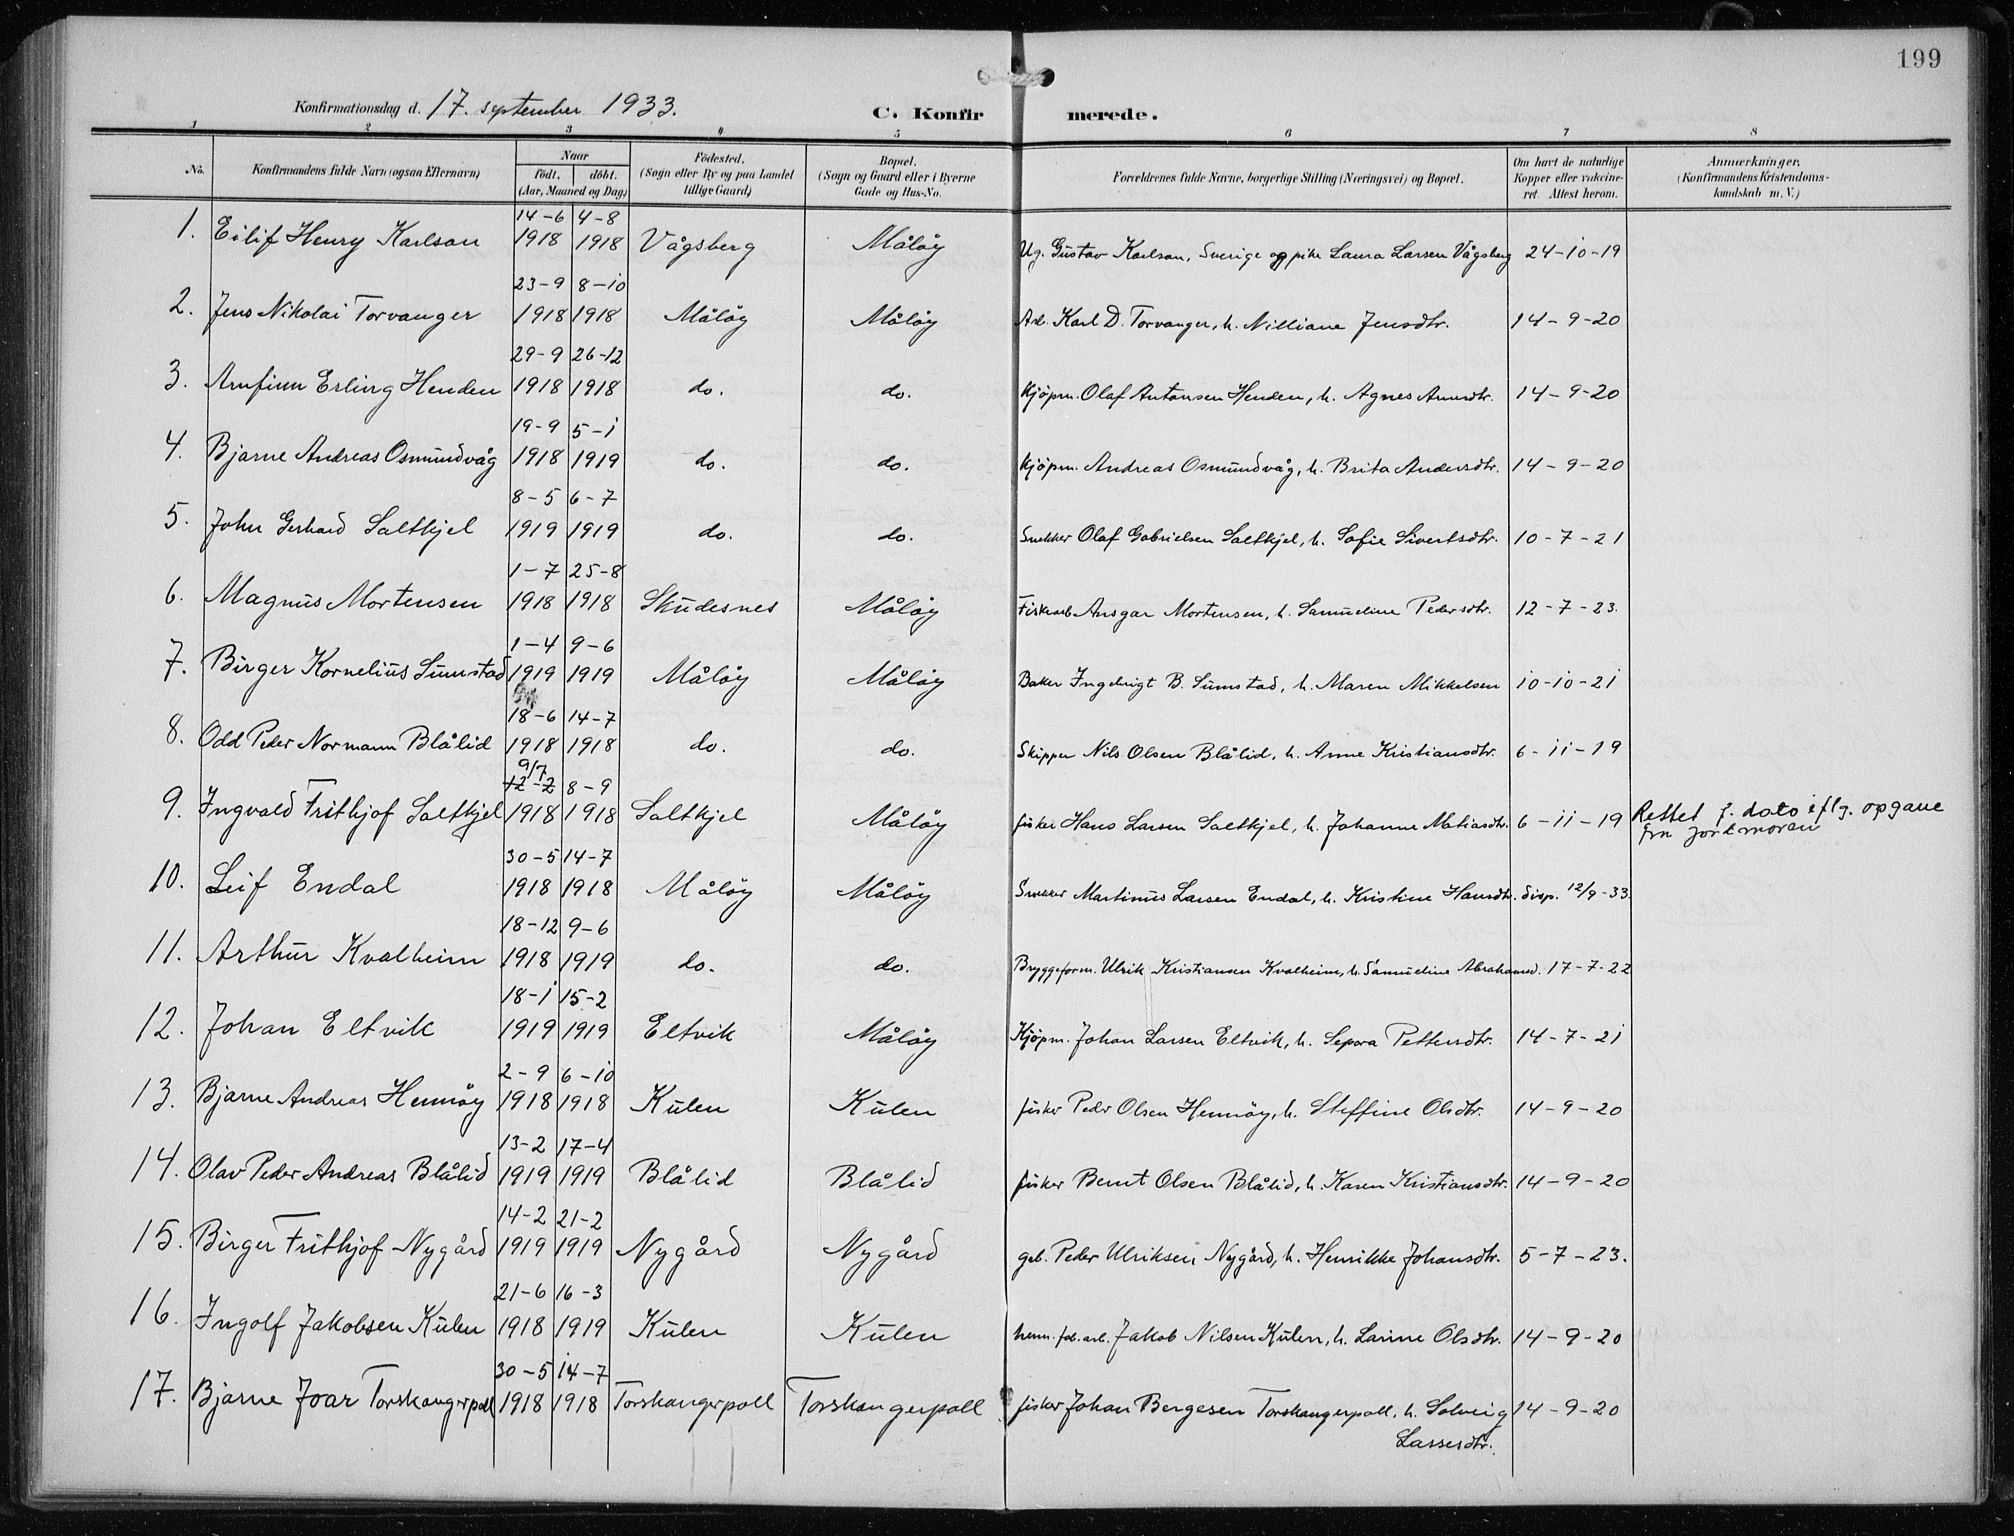 199
Konfirmationsdag d. 17. september 1933. C. Konfirmerede.
1 2 3 4 5 6 7 8
No. Konfirmandens fulde Navn (ogsaa Efternavn) Naar født. døbt. (Aar, Maaned og Dag) Fødested. (Sogn eller By og paa Landet tillige Gaard) Bopæl. (Sogn og Gaard eller i Byerne Gade og Hus-No. Forældrenes fulde Navne, borgerlige Stilling (Næringsvei) og Bopæl. Om havt de naturlige Kopper eller vakcineret. Attest herom. Anmærkninger. (Konfirmandens Kristendomskundskab m. V.)
14-6 4-8
1. Eilif Henry Karlson 1918 1918 Vågsberg Måløy Ug. Gustav Karlson, Sverige og pike Laura Larsen Vågsberg 24-10-19
23-9 8-10
2. Jens Nikolai Torvanger 1918 1918 Måløy Måløy Arb. Karl D. Torvanger, h. Nilliane Jensdtr. 14-9-20
29-9 26-12
3. Arnfinn Erling Henden 1918 1918 do. do. Kjøpm. Olaf Antonsen Henden, h. Agnes Annsdtr. 14-9-20
19-9 5-1
4. Bjarne Andreas Osmundvåg 1918 1919 do. do. Kjøpm. Andreas Osmundvåg, h. Brita Andersdtr. 14-9-20
8-5 6-7
5. John Gerhard Saltkjel 1919 1919 do. do. Snekker Olaf Gabrielsen Saltkjel, h. Sofie Sivertsdtr. 10-7-21
1-7 25-8
6. Magnus Mortensen 1918 1918 Skudesnes Måløy Fiskarb Ansgar Mortensen, h. Samueline Pedersdtr. 12-7-23.
1-4 9-6
7. Birger Kornelius Sumstad 1919 1919 Måløy Måløy Baker Ingebrigt B. Sumstad, h. Maren Mikkelsen 10-10-21
18-6 14-7
8. Odd Peder Normann Blålid 1918 1918 do. do. Skipper Nils Olsen Blålid, h. Anne Kristiansdtr. 6-11-19
9/7
12-2 8-9
9. Ingvald Frithjof Saltkjel 1918 1918 Saltkjel Måløy fisker Hans Larsen Saltkjel, h. Johanne Matiasdtr. 6-11-19 Rettet f. dato iflg. opgave
fra jordmoren
30-5 14-7
10. Leif Endal 1918 1918 Måløy Måløy Snekker Martinus Larsen Endal, h. Kristine Hansdtr. disp. 12/9-33.
18-12 9-6
11. Arthur Kvalheim 1918 1919 do. do. Bryggeform. Ulrik Kristiansen Kvalheim, h. Samueline Abrahamsd. 17-7-22
18-1 15-2
12. Johan Eltvik 1919 1919 Eltvik Måløy Kjøpm. Johan Larsen Eltvik, h. Sepora Pettersdtr. 14-7-21
2-9 6-10
13. Bjarne Andreas Hennøy 1918 1918 Kulen Kulen fisker Peder Olsen Hennøy, h. Steffine Olsdtr. 14-9-20
13-2 17-4
14. Olav Peder Andreas Blålid 1919 1919 Blålid Blålid fisker Bernt Olsen Blålid, h. Karen Kristiansdtr. 14-9-20
14-2 21-2
15. Birger Frithjof Nygård 1919 1919 Nygård Nygård geb. Peder Ulriksen Nygård, h. Henrikke Johansdtr. 5-7-23.
21-6 16-3
16. Ingolf Jakobsen Kulen 1918 1919 Kulen Kulen herm. fab. arb. Jakob Nilsen Kulen, h. Larine Olsdtr. 14-9-20
30-5 14-7
17. Bjarne Joar Torskangerpoll 1918 1918 Torskangerpoll Torskangerpoll fisker Johan Børgesen Torskangerpoll, h. Solveig 14-9-20
Lassesdtr.